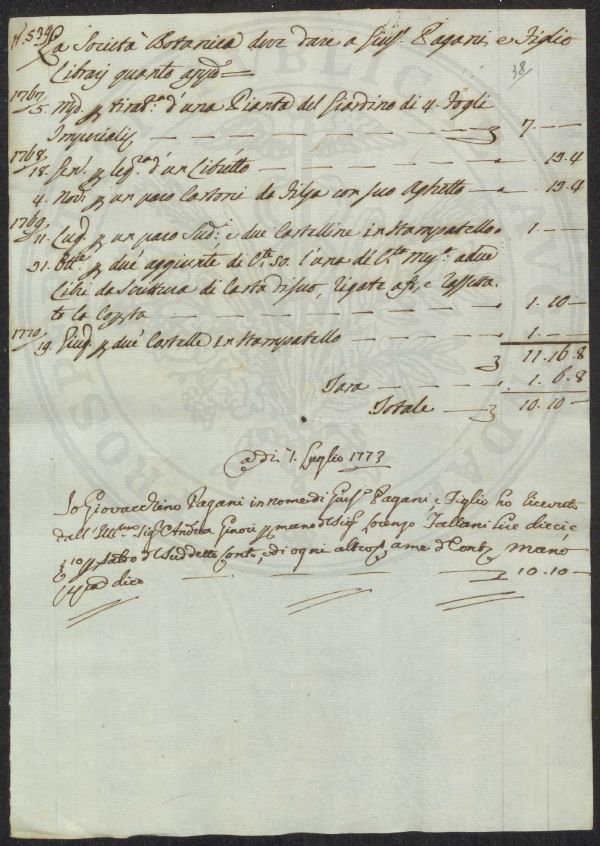 N. 539
38
La Società Botanica deve dare a Gius. Pagani, e Figlio
Libraj quanto app.o
1767
5. Mag. p tirat.a d'una Pianta del Giardino di 4. Fogli
Imperiali 7. —
1768
18. Gen. p leg.a d'un Libretto — . 13. 4
4. Nov. p un paro Cartoni da Filza con suo Aghetto — . 13. 4
1769
11. Lug. p un paro Sud.i e due Cartelline in Stampatello. 1. —
31. Ott.e p due aggiunte di C.te 50. l'una di C.ta a due
Libri da Scrittura di Carta rigate e rassetta-
te la Coperta 1. 10 —
1770
19. Giug. p due Cartelle in Stampatello 1. —
11. 16. 8
Tara 1. 6. 8
Totale 10. 10 —
Adi 7. Luglio 1773
Io Giovacchino Pagani in nome di Gius. Pagani, e Figlio ho ricevuto
dall' Ill.mo Sig.e Andrea Ginori p mano del Sig. Lorenzo Lire dieci, e
10 p saldo del Suddetto Conto, e di ogni altro, a me d.o Cont. mano
dico 10. 10 —